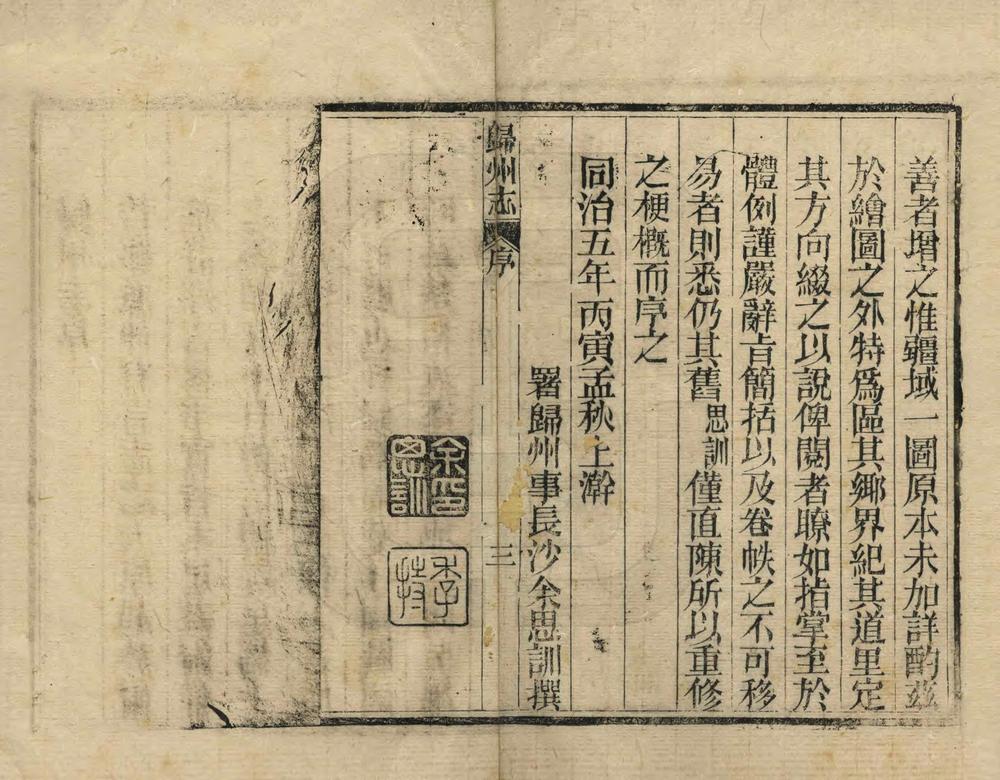 善者增之惟疆域一圖原本未加詳酌玆
於繪圖之外特爲區其鄉界紀其道里定
其方向綴之以說俾閱者瞭如指掌至於
體例謹嚴辭旨簡括以及卷帙之不可移
易者則悉仍其舊思訓僅直陳所以重修
之梗概而序之
同治五年丙寅孟秋上澣
署歸州事長沙余思訓撰
歸州志
序
三
余思訓印